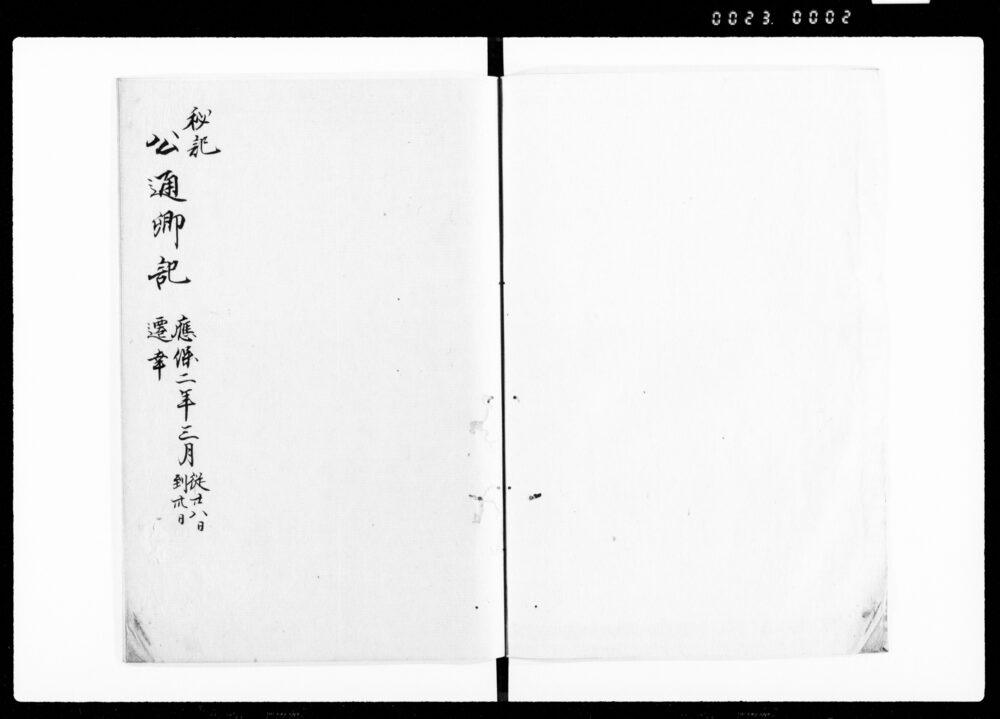 0023. 0002
秘記
公通卿記
應保二年三月
從廿八日
到卅日
遷幸